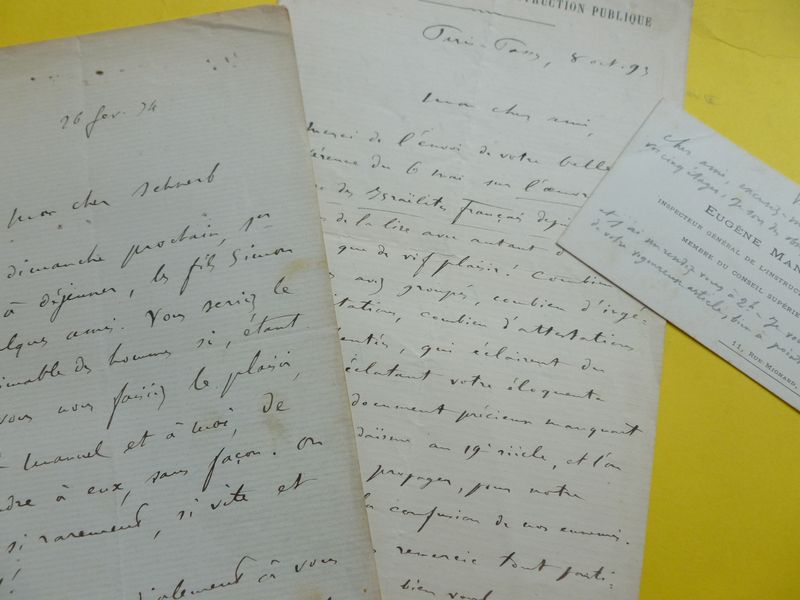 26 fev. 94
Mon cher Schwab
dimanche prochain,
à déjeuner, les fils Simon
quelques amis. Vous seriez le
aimable des hommes si, étant
vous nous faisiez le plaisir,
Manuel et à moi, de
à eux, sans façon. On
si rarement, si vite et
à vous
INSTRUCTION PUBLIQUE
8 oct. 93
Mon cher ami,
merci de l'envoi de votre belle
conférence du 6 mai sur l'œuvre
des Israélites français depuis
de la lire avec autant
que de vif plaisir! Combien
avez groupés, combien d'ingé-
combien d'attestations
qui éclairent du
éclatant votre éloquente
document précieux manquait
judaïsme au 19e siècle, et l'on
propager, pour notre
la confusion de nos ennemis.
remercie tout parti-
bien
cher ami, excusez
vos cinq étages, je
EUGÈNE MAN
INSPECTEUR GÉNÉRAL DE L'INSTRUC
MEMBRE DU CONSEIL SUPÉRIE
et j'ai un rendez vous à 2h
de votre vigoureux article,
11, RUE MIGNARD,